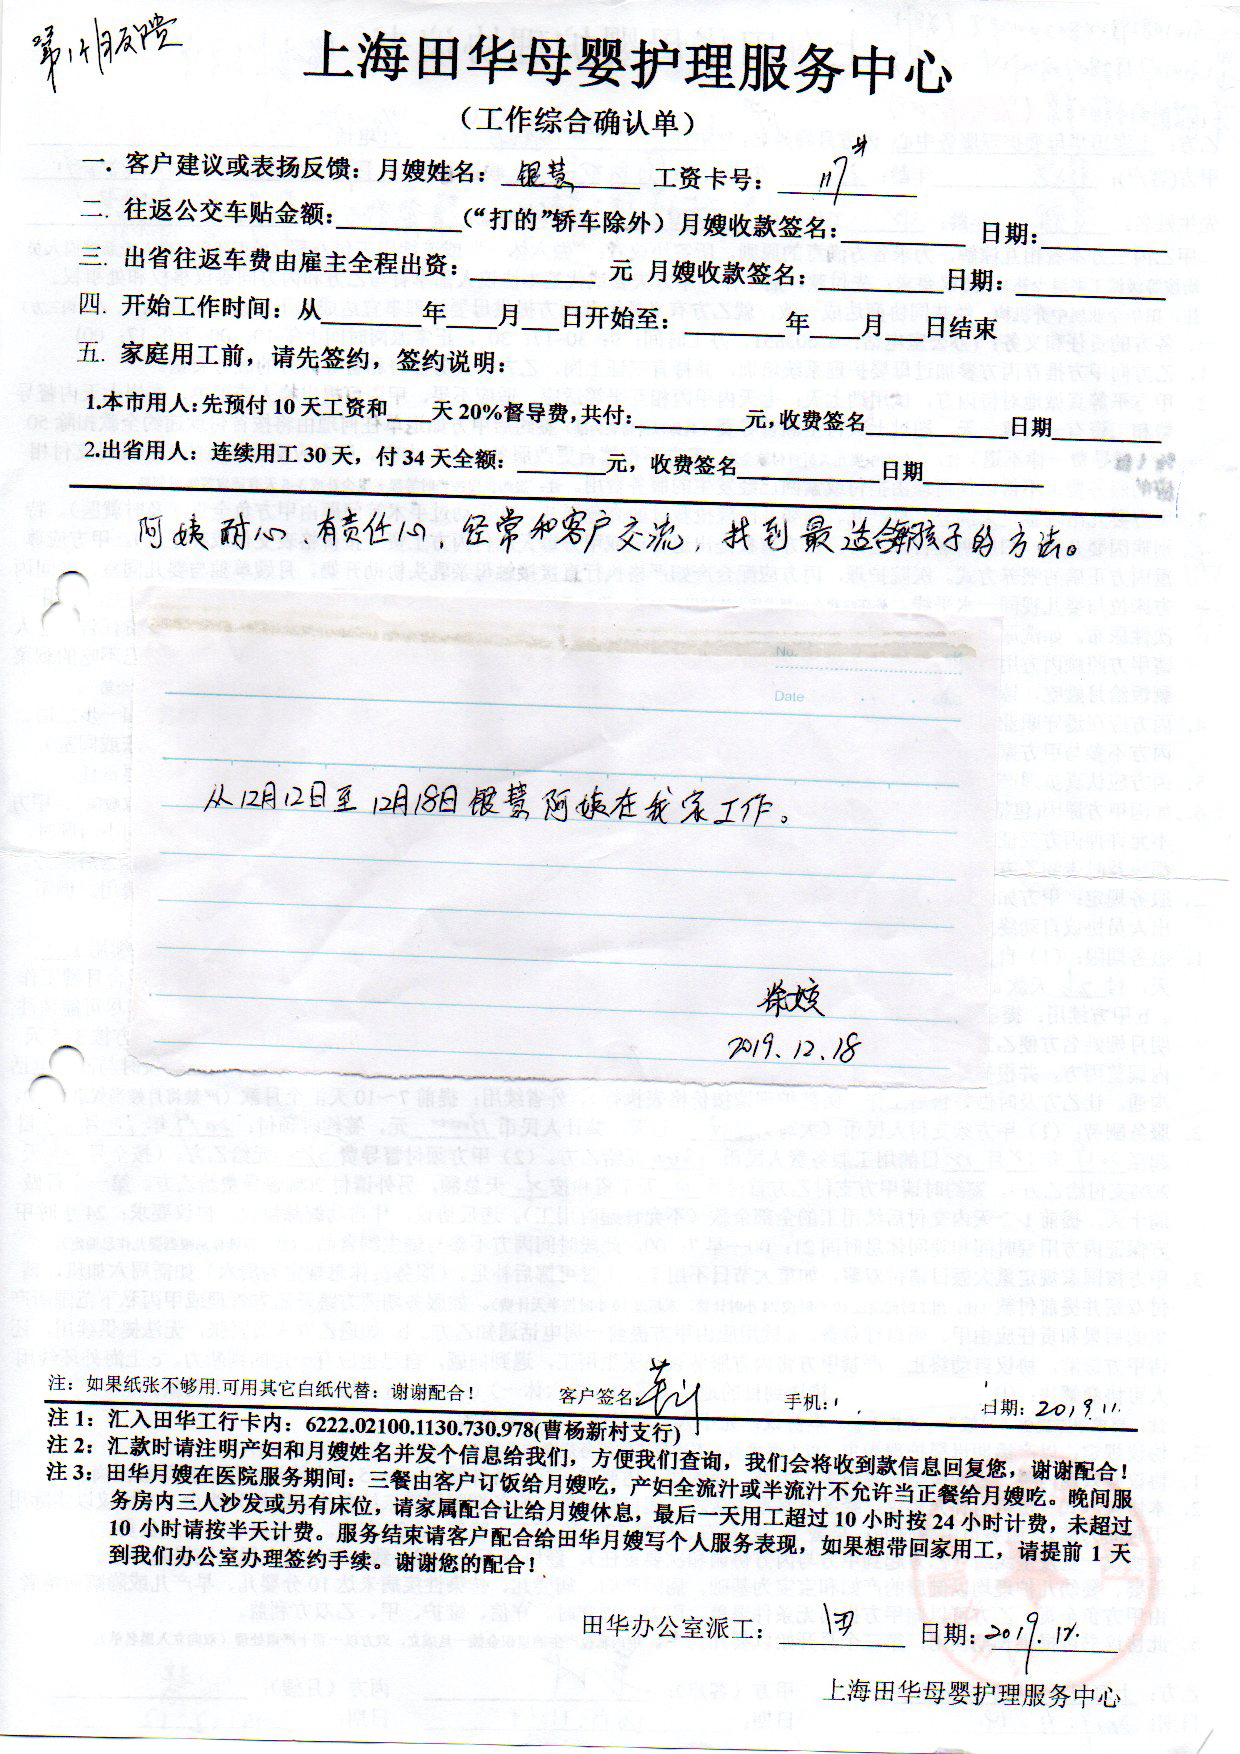 第1个月反馈
上海田华母婴护理服务中心
（工作综合确认单）
一. 客户建议或表扬反馈：月嫂姓名：银慧 工资卡号：117#
二. 往返公交车贴金额：（“打的”轿车除外）月嫂收款签名： 日期：
三. 出省往返车费由雇主全程出资： 元 月嫂收款签名： 日期：
四. 开始工作时间：从 年 月 日开始至： 年 月 日结束
五. 家庭用工前，请先签约，签约说明：
1.本市用人：先预付10天工资和 天20%督导费，共付： 元，收费签名 日期
2.出省用人：连续用工30天，付34天全额： 元，收费签名 日期
阿姨耐心、有责任心，经常和客户交流，找到最适合孩子的方法。
No.
Date
从12月12日至12月18日银慧阿姨在我家工作。
2019.12.18
注：如果纸张不够用.可用其它白纸代替：谢谢配合！ 客户签名： 手机： 日期：2019.11.
注1：汇入田华工行卡内：6222.02100.1130.730.978(曹杨新村支行)
注2：汇款时请注明产妇和月嫂姓名并发个信息给我们，方便我们查询，我们会将收到款信息回复您，谢谢配合！
注3：田华月嫂在医院服务期间：三餐由客户订饭给月嫂吃，产妇全流汁或半流汁不允许当正餐给月嫂吃。晚间服
务房内三人沙发或另有床位，请家属配合让给月嫂休息，最后一天用工超过10小时按24小时计费，未超过
10小时请按半天计费。服务结束请客户配合给田华月嫂写个人服务表现，如果想带回家用工，请提前1天
到我们办公室办理签约手续。谢谢您的配合！
田华办公室派工：田 日期：2019.12.
上海田华母婴护理服务中心